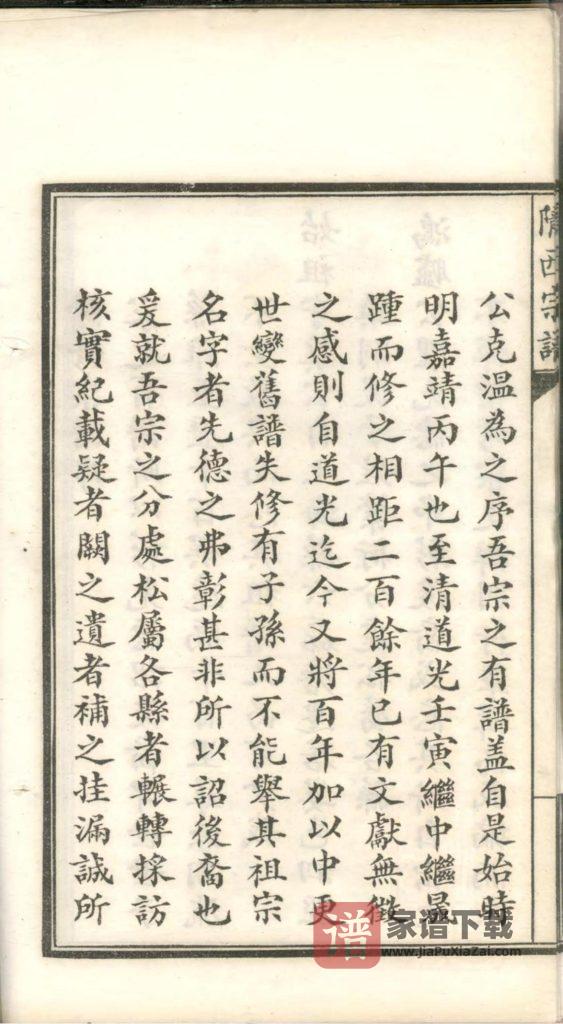 隴西宗譜
公克溫為之序吾宗之有譜盖自是始時
明嘉靖丙午也至清道光壬寅繼中繼晟
踵而修之相距二百餘年已有文獻無徵
之感則自道光迄今又將百年加以中更
世變舊譜失修有子孫而不能舉其祖宗
名字者先德之弗彰甚非所以詔後裔也
爰就吾宗之分處松屬各縣者輾轉採訪
核實紀載疑者闕之遺者補之挂漏誠所
谱 家谱下载
www.JiaPuXiaZai.com